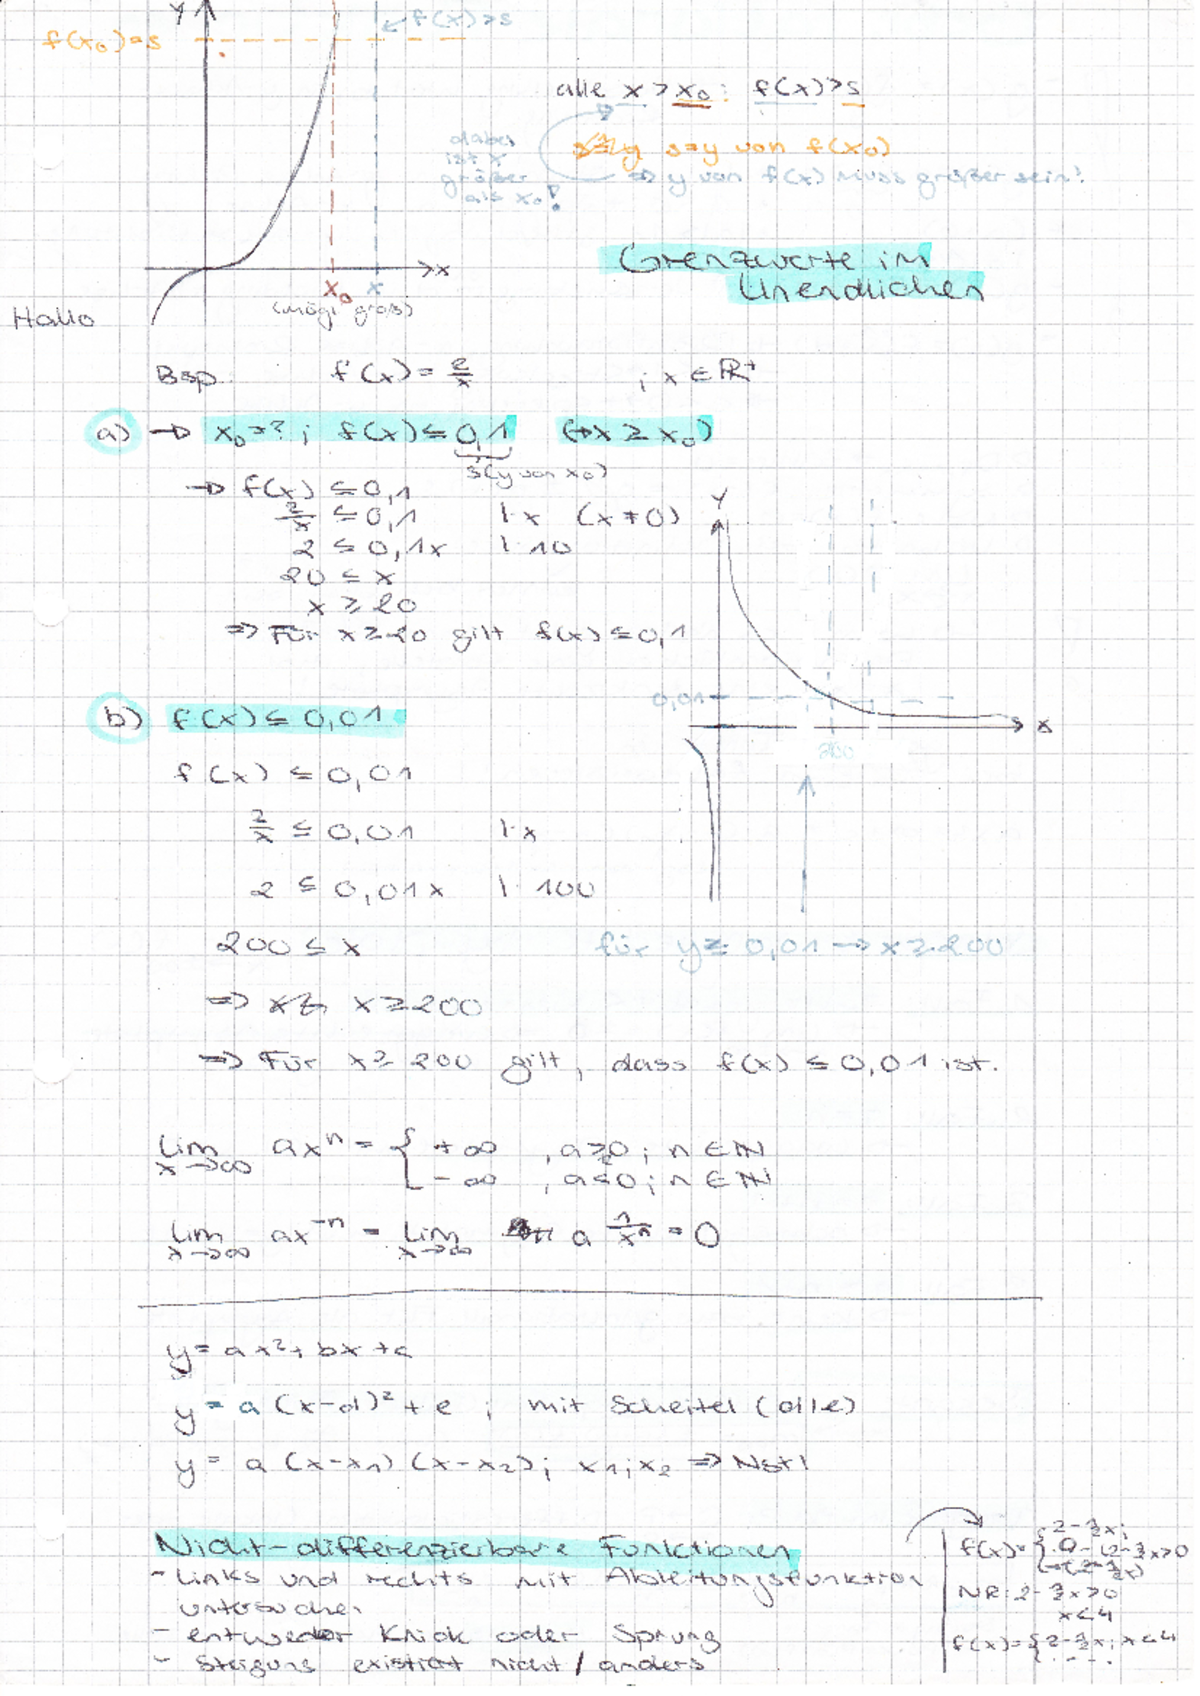 y
f(x₀)=s
f(x)>s
alle x > x₀ : f(x)>s
s=y von f(x₀)
⇒ y von f(x) muss größer sein!
dabei
ist x
größer
als x₀!
x
x₀ x
(mögl. groß)
Hallo
Grenzwerte im
Unendlichen
Bsp. f(x) = 2/x ; x ∈ ℝ⁺
a) → x₀=? ; f(x) ≤ 0,1 (→x ≥ x₀)
s(y von x₀)
→ f(x) ≤ 0,1
2/x ≤ 0,1 |·x (x≠0)
2 ≤ 0,1x |·10
20 ≤ x
x ≥ 20
⇒ Für x ≥ 20 gilt f(x) ≤ 0,1
y
0,01
x
200
b) f(x) ≤ 0,01
f(x) ≤ 0,01
2/x ≤ 0,01 |·x
2 ≤ 0,01x |·100
200 ≤ x
für y ≤ 0,01 → x ≥ 200
⇒ x ≥ 200
⇒ Für x ≥ 200 gilt, dass f(x) ≤ 0,01 ist.
lim x→∞ axⁿ = { +∞ , a>0 ; n ∈ ℕ
-∞ , a<0 ; n ∈ ℕ
lim x→∞ ax⁻ⁿ = lim x→∞ a 1/xⁿ = 0
y = ax² + bx + c
y = a (x-d)² + e ; mit Scheitel (d|e)
y = a (x-x₁) (x-x₂) ; x₁;x₂ ⇒ Nst!
Nicht-differenzierbare Funktionen
- Links und rechts mit Ableitungsfunktion
untersuchen
- entweder Knick oder Sprung
- Steigung existiert nicht / anders
NR: 2-½x>0
x<4
f(x)={2-½x; x<4